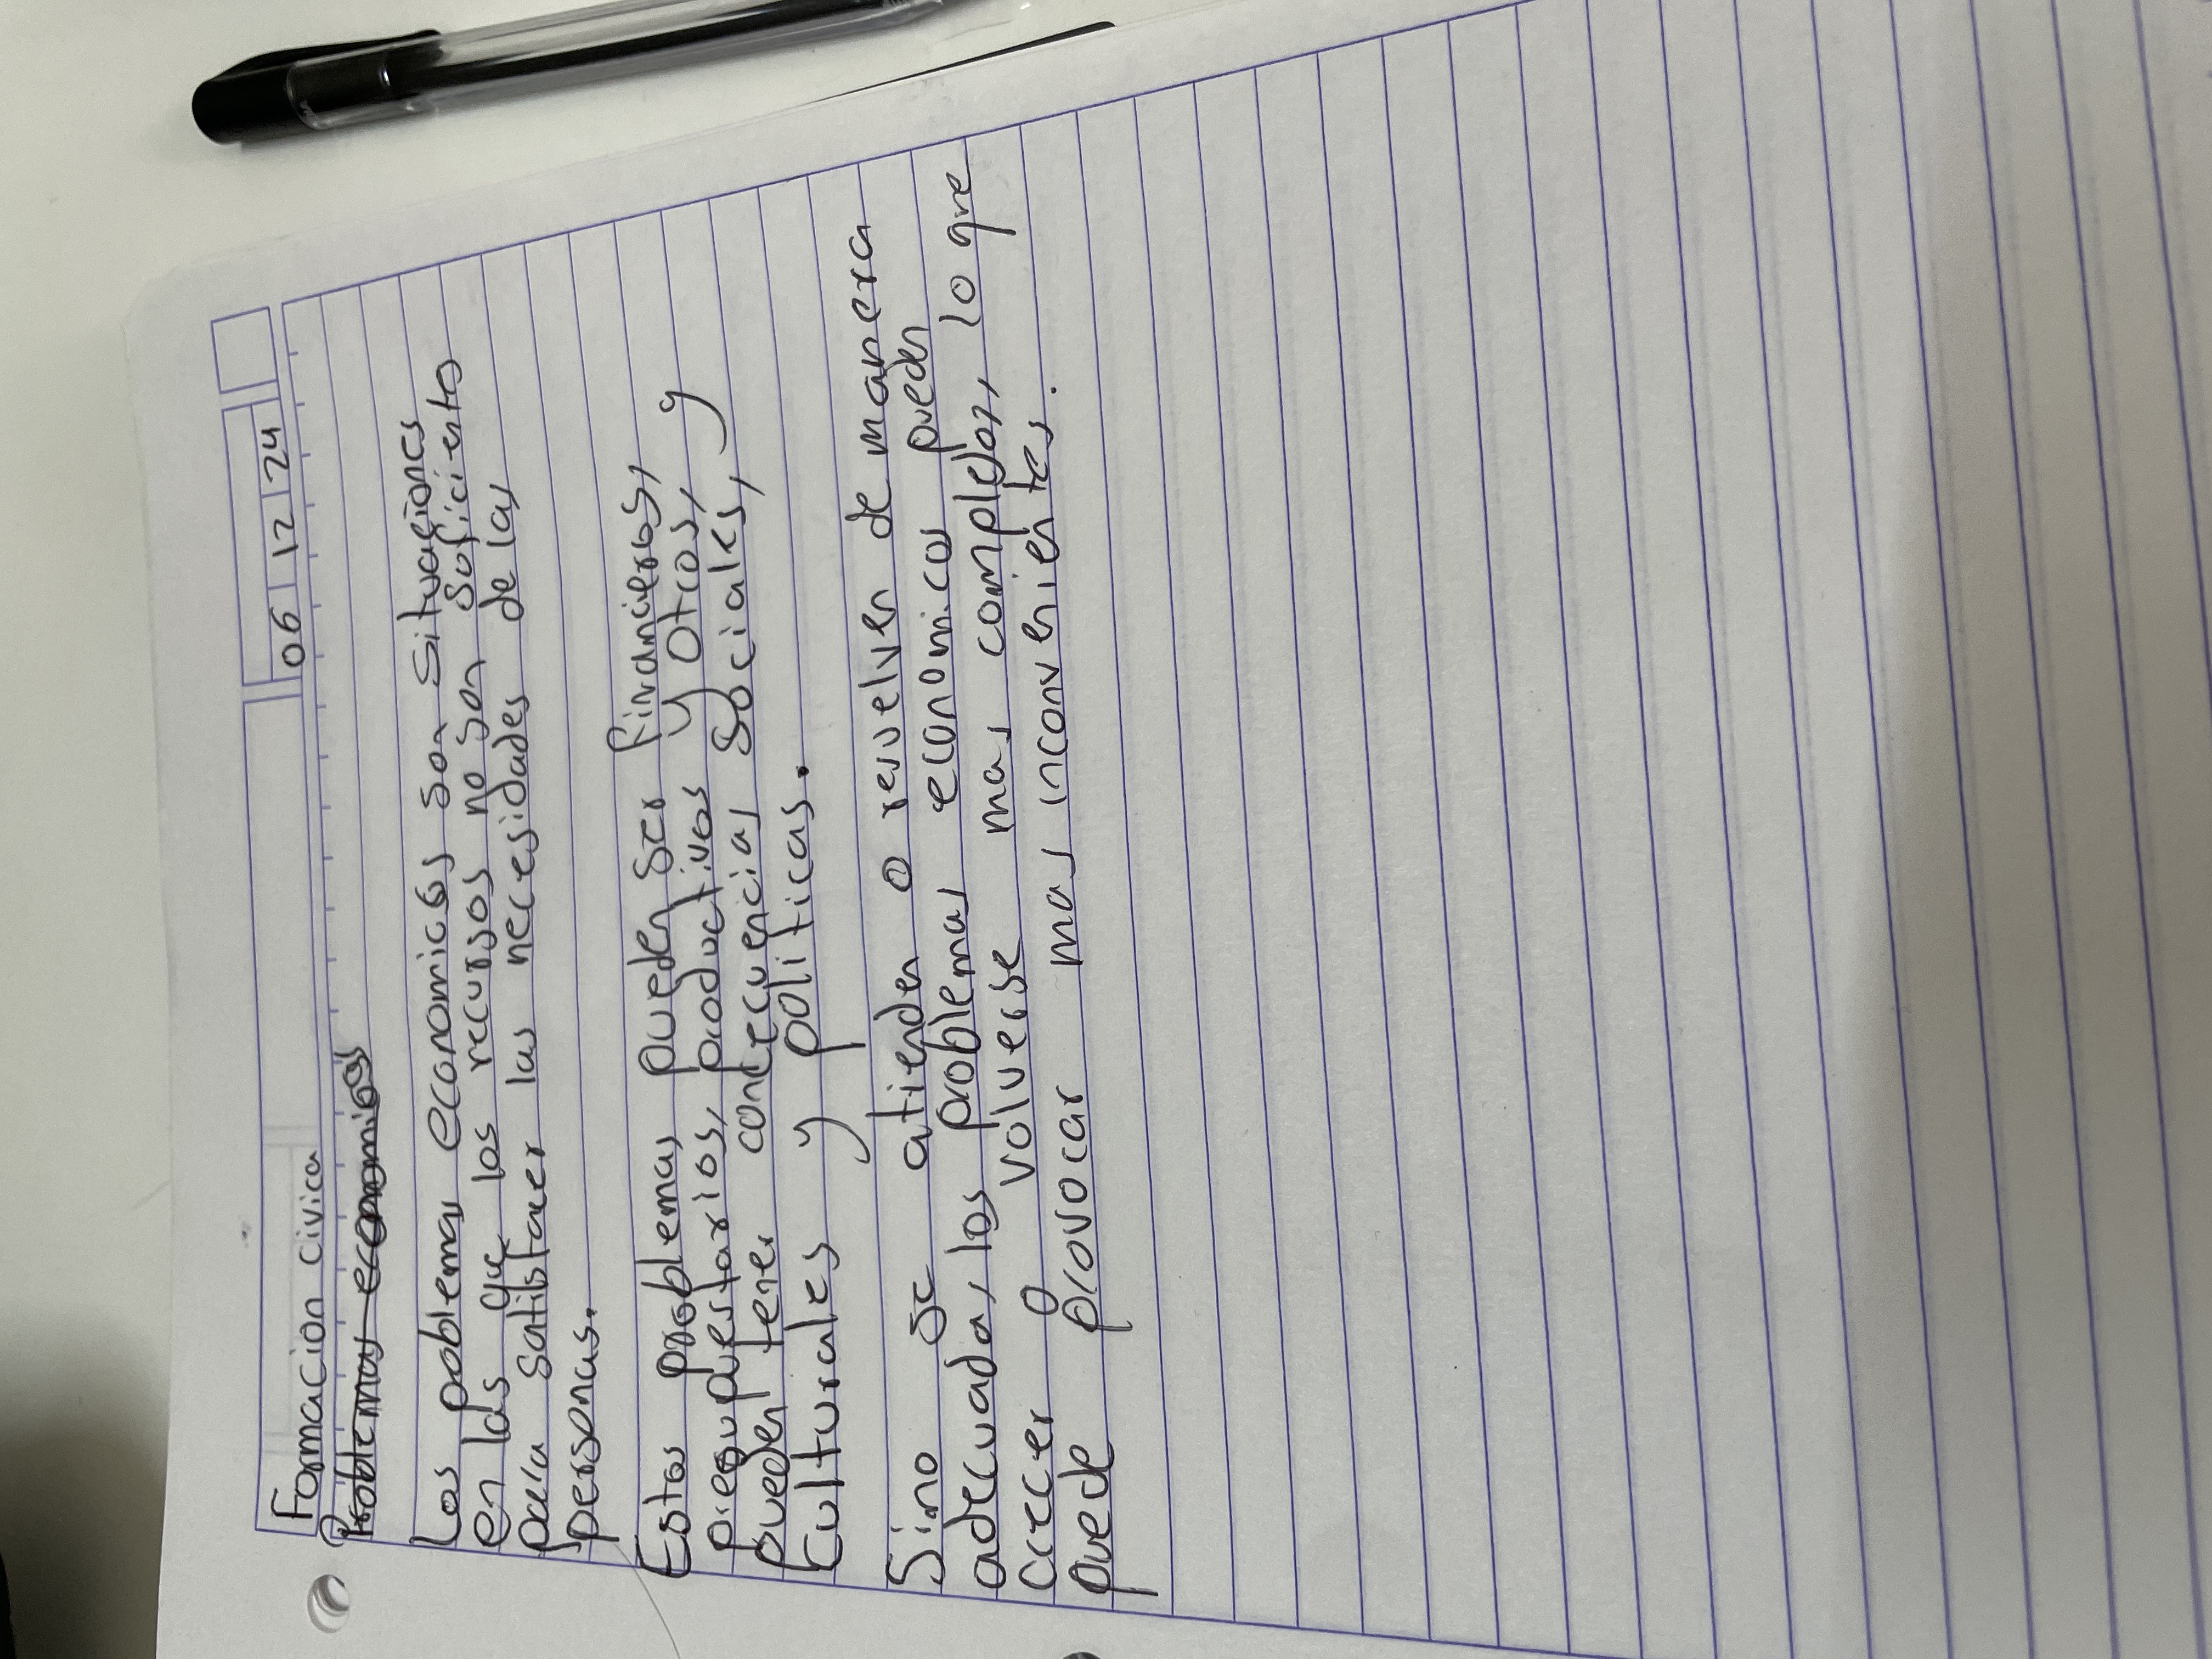 Formacion Civica
06 12 24
Problemas economicos
Los poblemas economicos son Situaciones
en las que los recursos no son soficientes
para satisfacer las necesidades de las
personas.
Estos problemas pueden ser financieros,
presupuestarios, productivos y otros, y
pueden tener consecuencias sociales,
Culturales y politicas.
Sino se atienden o resuelven de manera
adecuada, los problemas economicos pueden
crecer o volverse mas complejos, lo que
puede provocar mas inconvenientes.